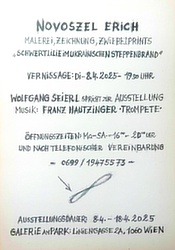 NOVOSZEL ERICH
MALEREI, ZEICHNUNG, ZWIEBELPRINTS
„SCHWERTLILIE IM UKRAINISCHEN STEPPENBRAND"
VERNISSAGE: DI- 8.4.2025- 19.30 UHR
WOLFGANG SEIERL SPRICHT ZUR AUSSTELLUNG
MUSIK: FRANZ HAUTZINGER · TROMPETE ·
ÖFFNUNGSZEITEN: MO-SA- 16°°- 20°° UHR
UND NACH TELEFONISCHER VEREINBARUNG
- 0699 / 19475573 -
AUSSTELLUNGSDAUER: 8.4. - 18.4.2025
GALERIE AM PARK: LINIENGASSE 2A, 1060 WIEN